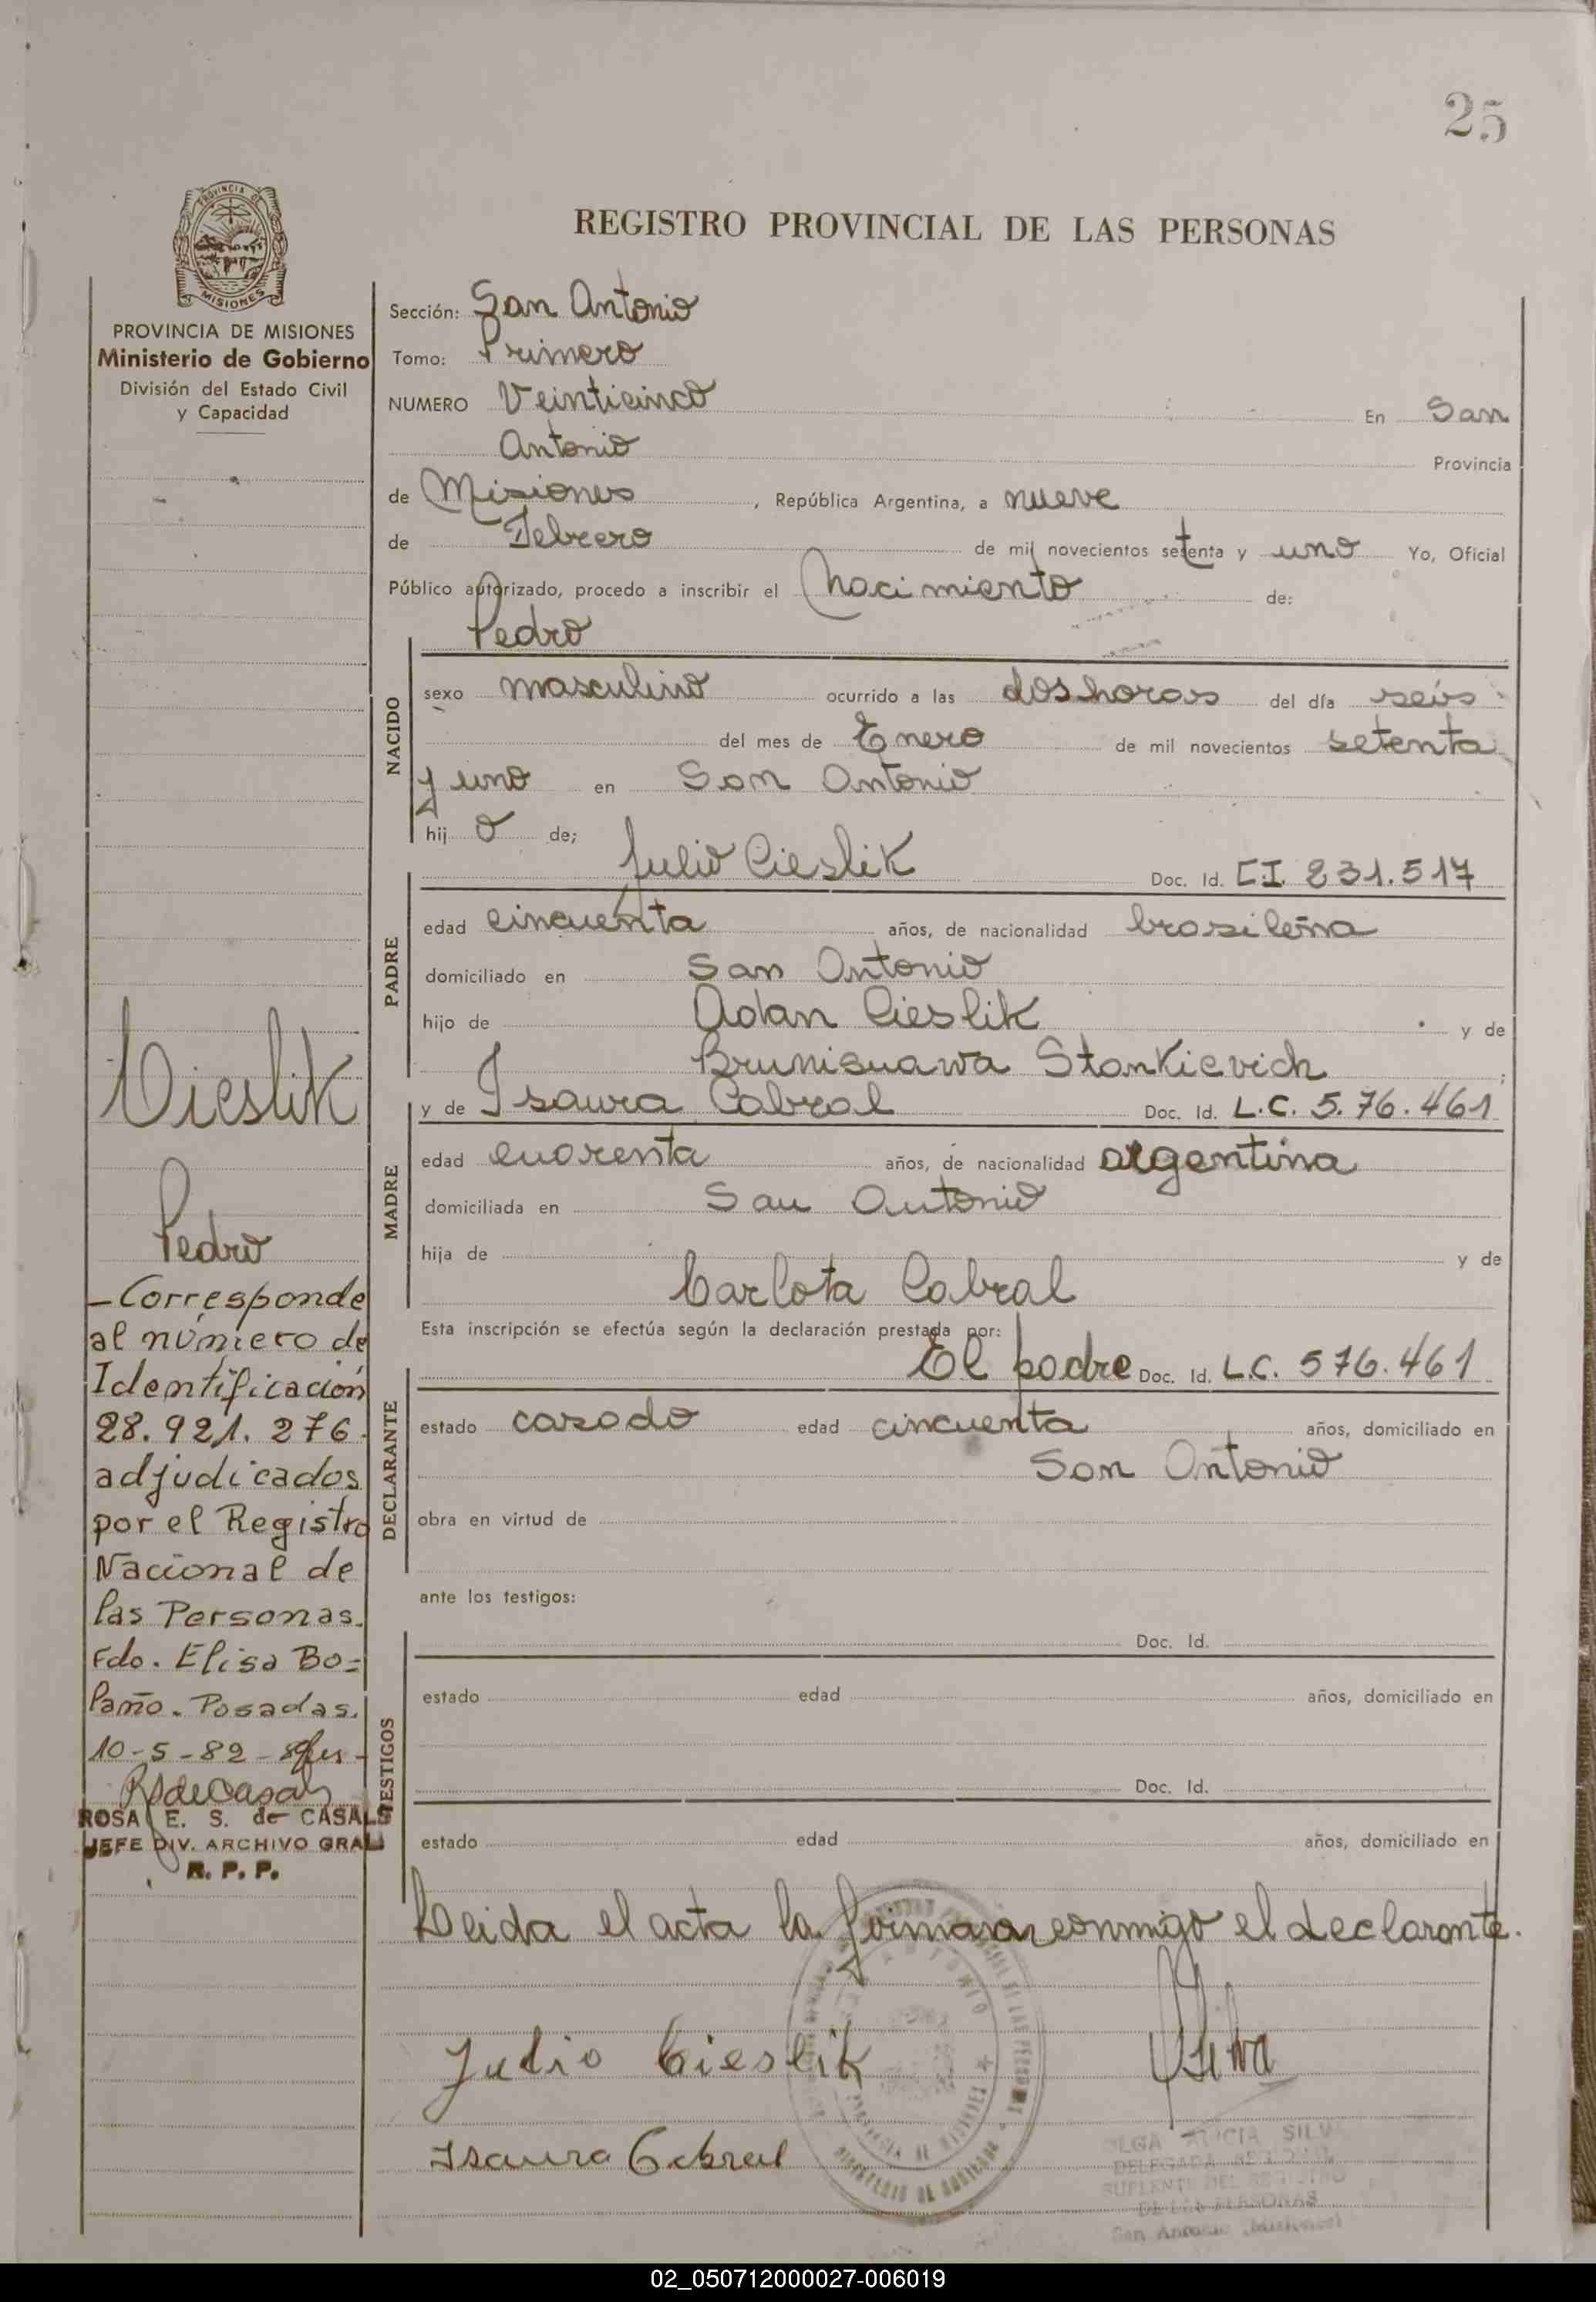 25
REGISTRO PROVINCIAL DE LAS PERSONAS
PROVINCIA DE
MISIONES
PROVINCIA DE MISIONES
Ministerio de Gobierno
División del Estado Civil
y Capacidad
Sección: San Antonio
Tomo: Primero
NUMERO Veinticinco En San
Antonio Provincia
de Misiones, República Argentina, a nueve
de Febrero de mil novecientos setenta y uno Yo, Oficial
Público autorizado, procedo a inscribir el Nacimiento de:
Pedro
NACIDO
sexo masculino ocurrido a las dos horas del día seis
del mes de Enero de mil novecientos setenta
y uno en San Antonio
hijo de;
Julio Cieslik Doc. Id. C.I. 231.517
PADRE
edad cincuenta años, de nacionalidad brasileña
domiciliado en San Antonio
hijo de Adan Cieslik y de
Brunisuawa Stankievich ;
y de Isaura Cabral Doc. Id. L.C. 5.76.461
MADRE
edad cuarenta años, de nacionalidad argentina
domiciliada en San Antonio
hija de y de
Carlota Cabral
Esta inscripción se efectúa según la declaración prestada por:
El padre Doc. Id. L.C. 576.461
DECLARANTE
estado casado edad cincuenta años, domiciliado en
San Antonio
obra en virtud de
ante los testigos:
Doc. Id.
TESTIGOS
estado edad años, domiciliado en
Doc. Id.
estado edad años, domiciliado en
Leida el acta la firman conmigo el declarante.
Julio Cieslik
Isaura Cabral
Silva
OLGA ALICIA SILVA
DELEGADA REGIONAL
SUPLENTE DEL REGISTRO
DE LAS PERSONAS
San Antonio (Misiones)
Cieslik
Pedro
-Corresponde
al número de
Identificación
28.921.276.
adjudicados
por el Registro
Nacional de
las Personas.
Fdo. Elisa Bo=
laño. Posadas.
10-5-82-
ROSA E. S. de CASALS
JEFE DIV. ARCHIVO GRAL
R. P. P.
02_050712000027-006019